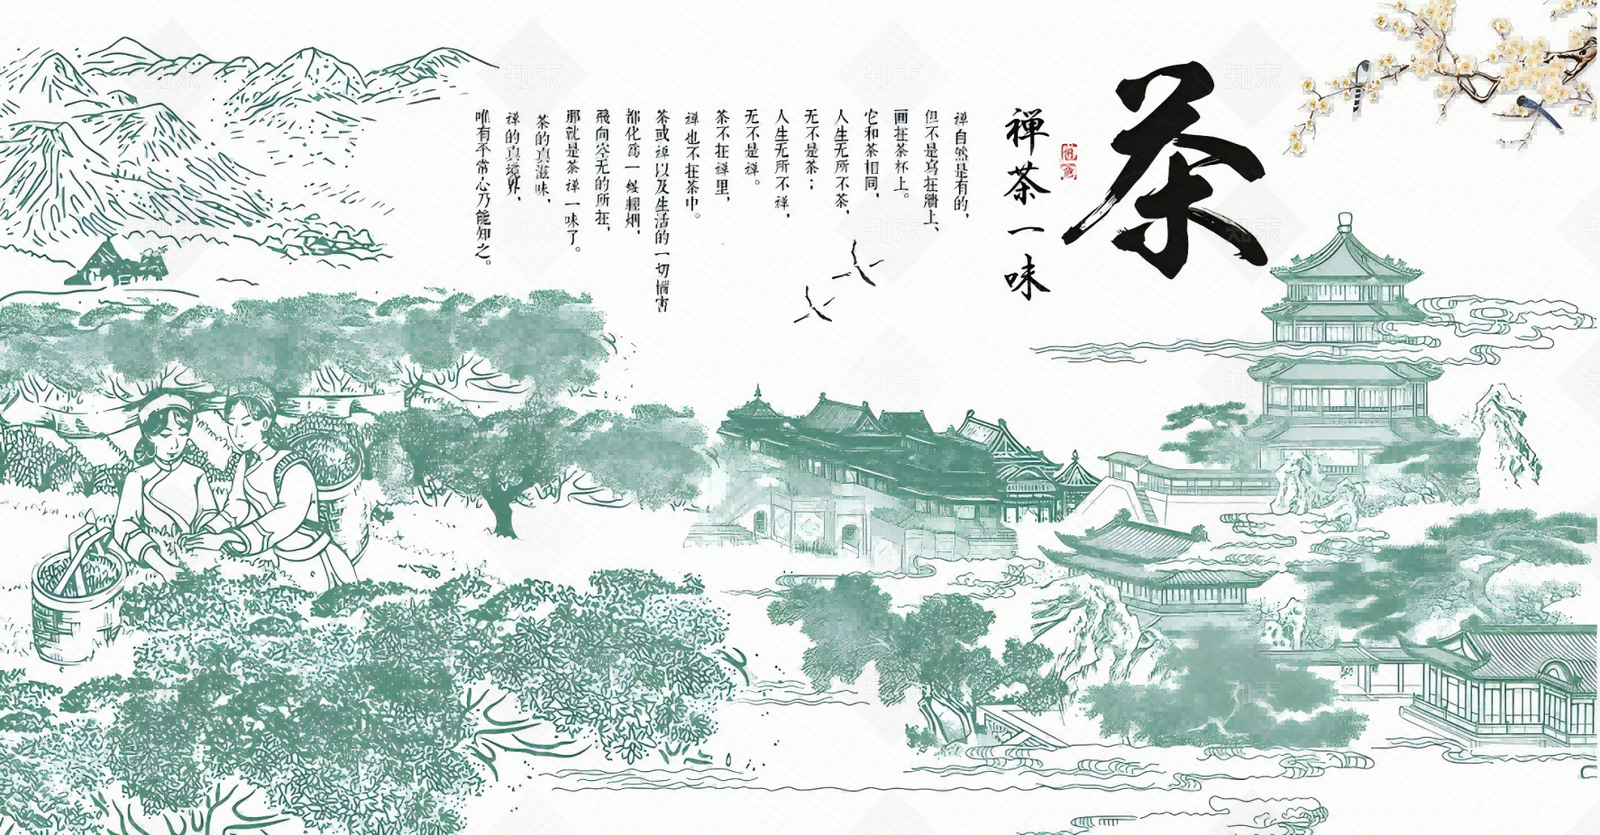 茶
禅茶一味
禅自然是有的，
但不是写在墙上、
画在茶杯上。
它和茶相同，
人生无所不茶，
无不是茶；
人生无所不禅，
无不是禅。
茶不在禅里，
禅也不在茶中。
茶或禅以及生活的一切情
都化为一缕轻烟，
飛向空无的所在，
那就是茶禅一味了。
茶的真滋味，
禅的真境界，
唯有平常心乃能知之。
知末